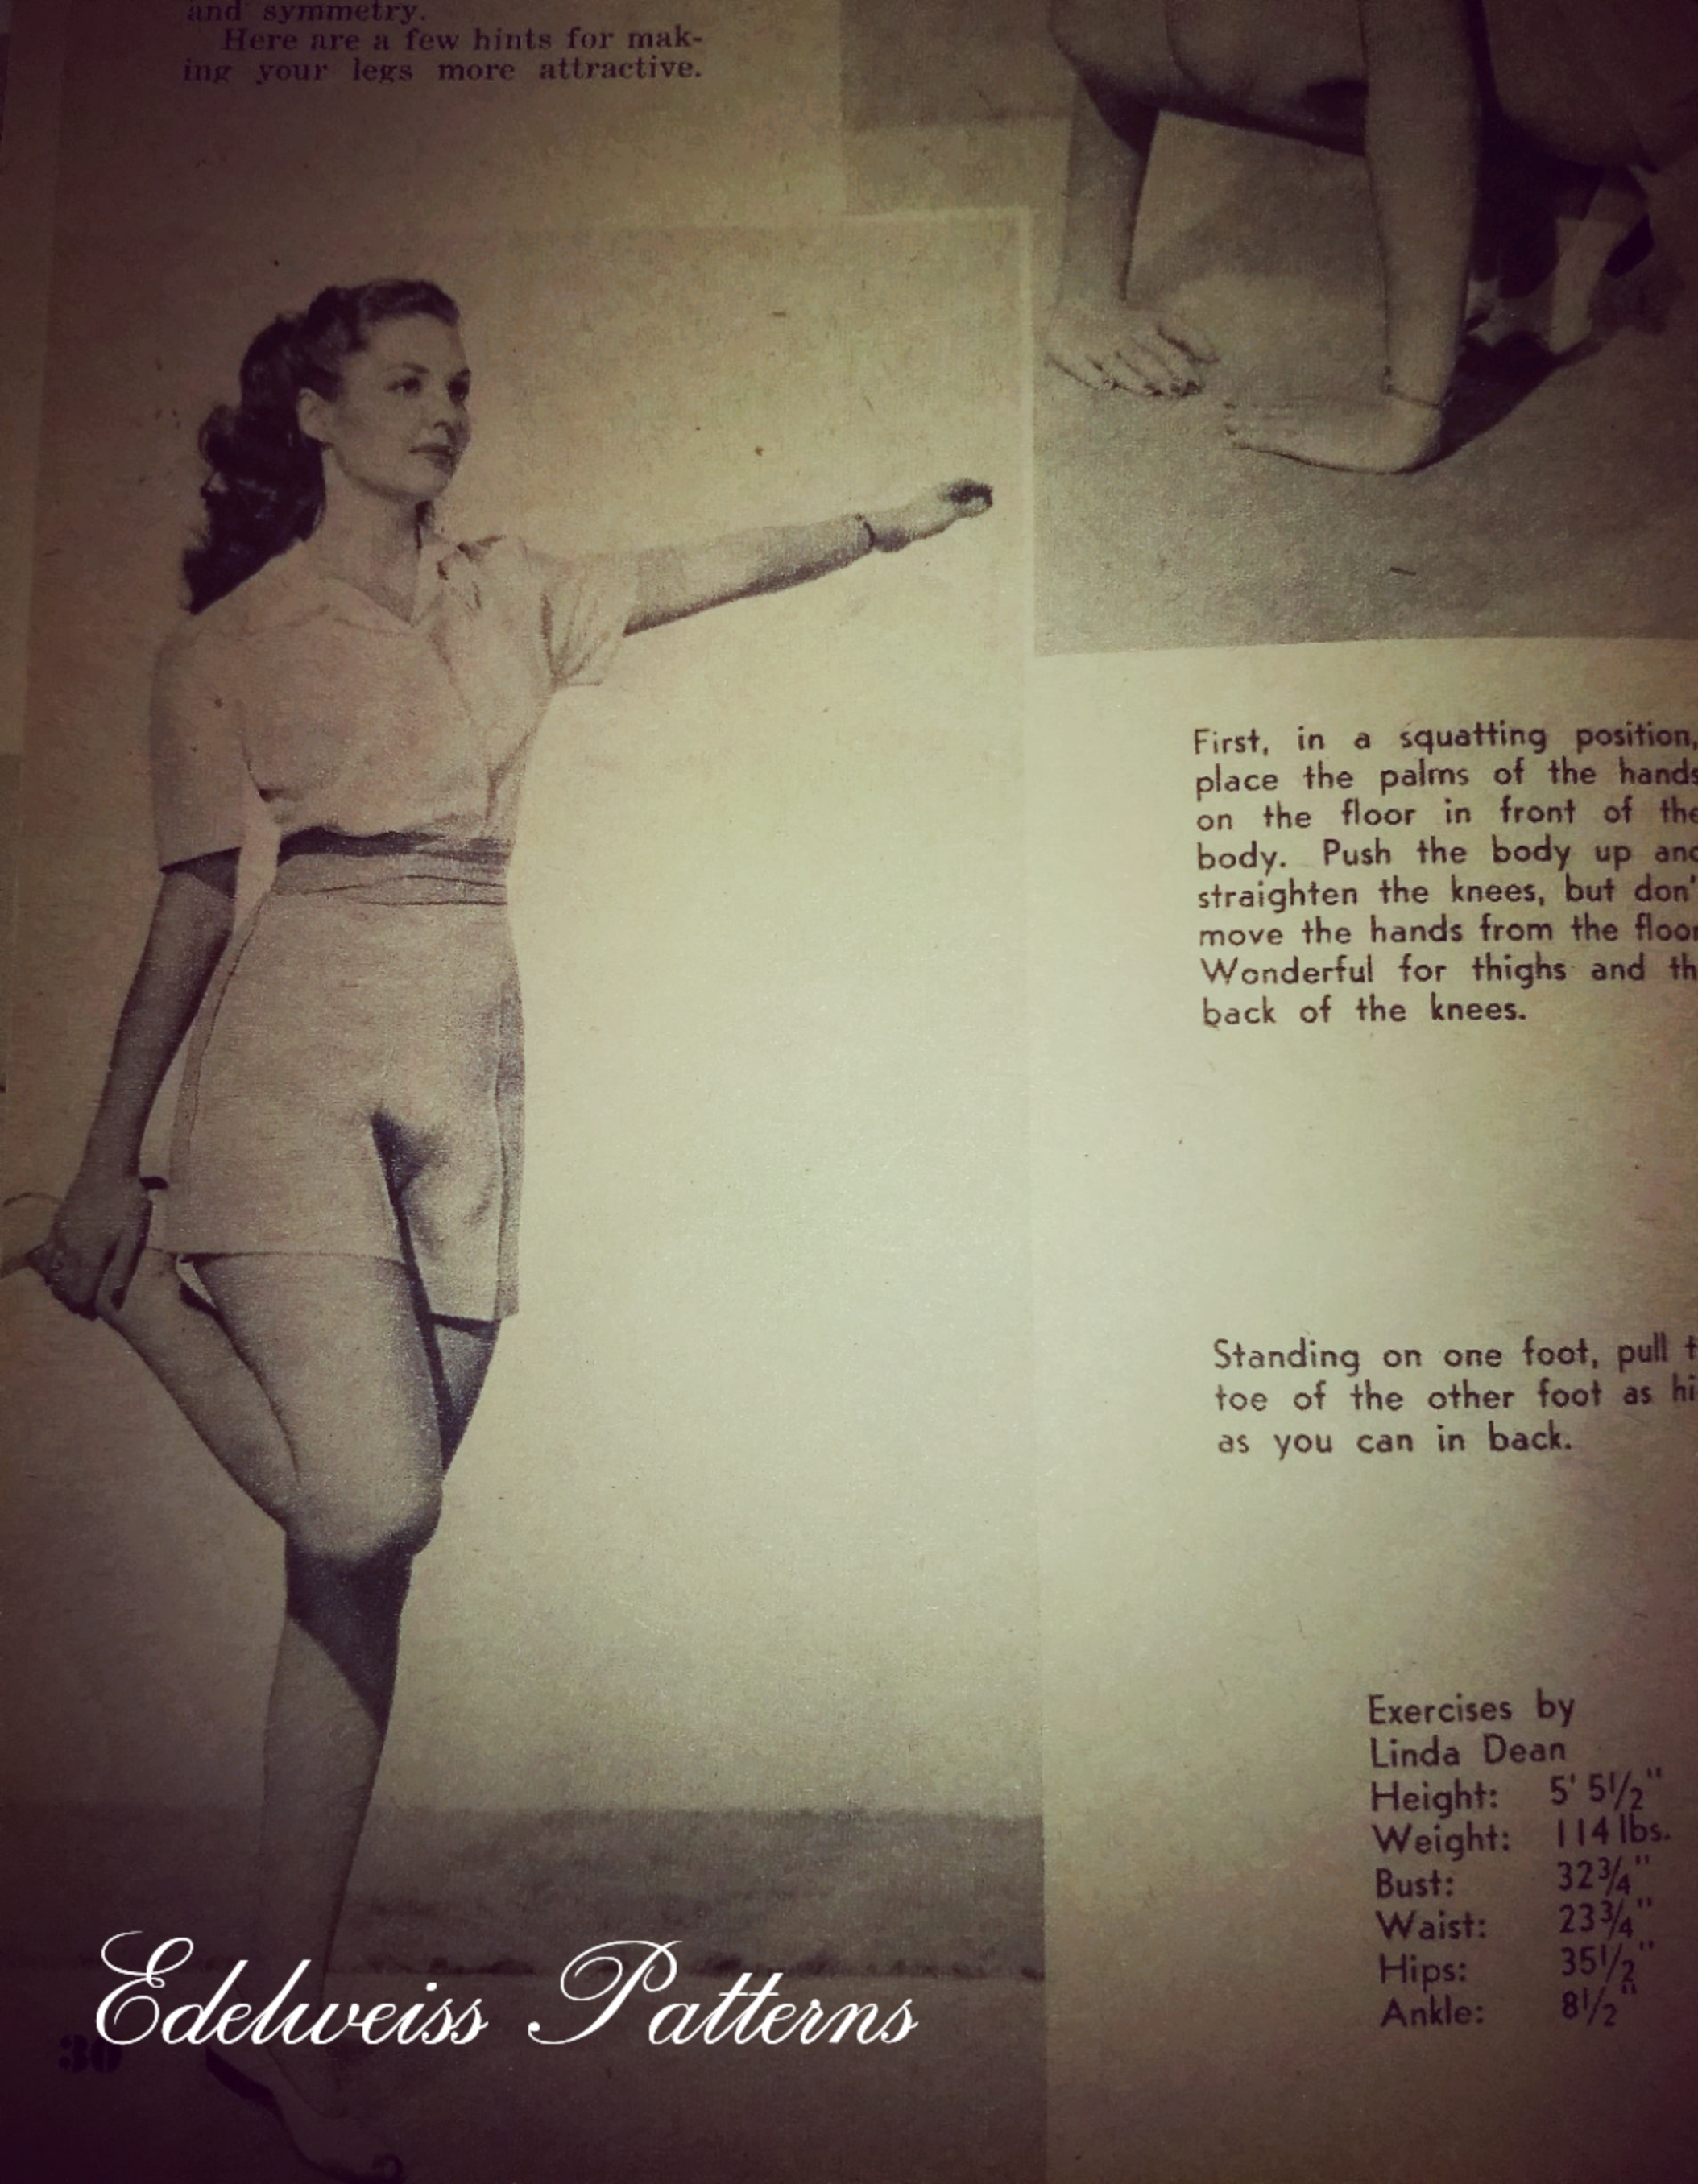 and symmetry.
Here are a few hints for mak-
ing your legs more attractive.
First, in a squatting position,
place the palms of the hands
on the floor in front of the
body. Push the body up and
straighten the knees, but don'
move the hands from the floor
Wonderful for thighs and th
back of the knees.
Standing on one foot, pull t
toe of the other foot as hi
as you can in back.
Exercises by
Linda Dean
Height: 5' 5 1/2"
Weight: 114 lbs.
Bust: 32 3/4"
Waist: 23 3/4"
Hips: 35 1/2"
Ankle: 8 1/2"
Edelweiss Patterns
30